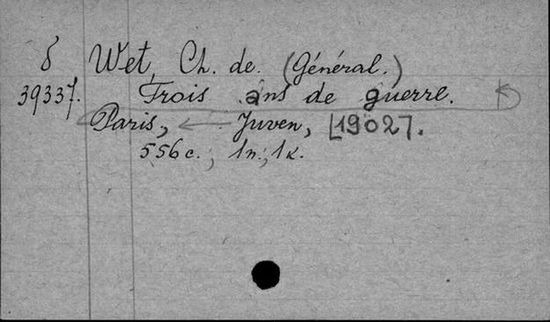 δ Wet, Ch. de. (Général.)
39337. Trois ans de guerre.
Paris, Juven, [1902].
556 c.; 1 п.; 1 к.